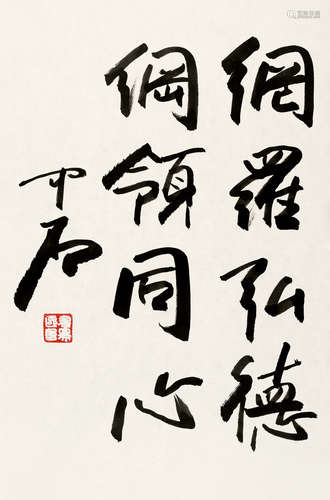 網羅弘德
綱領同心
中石